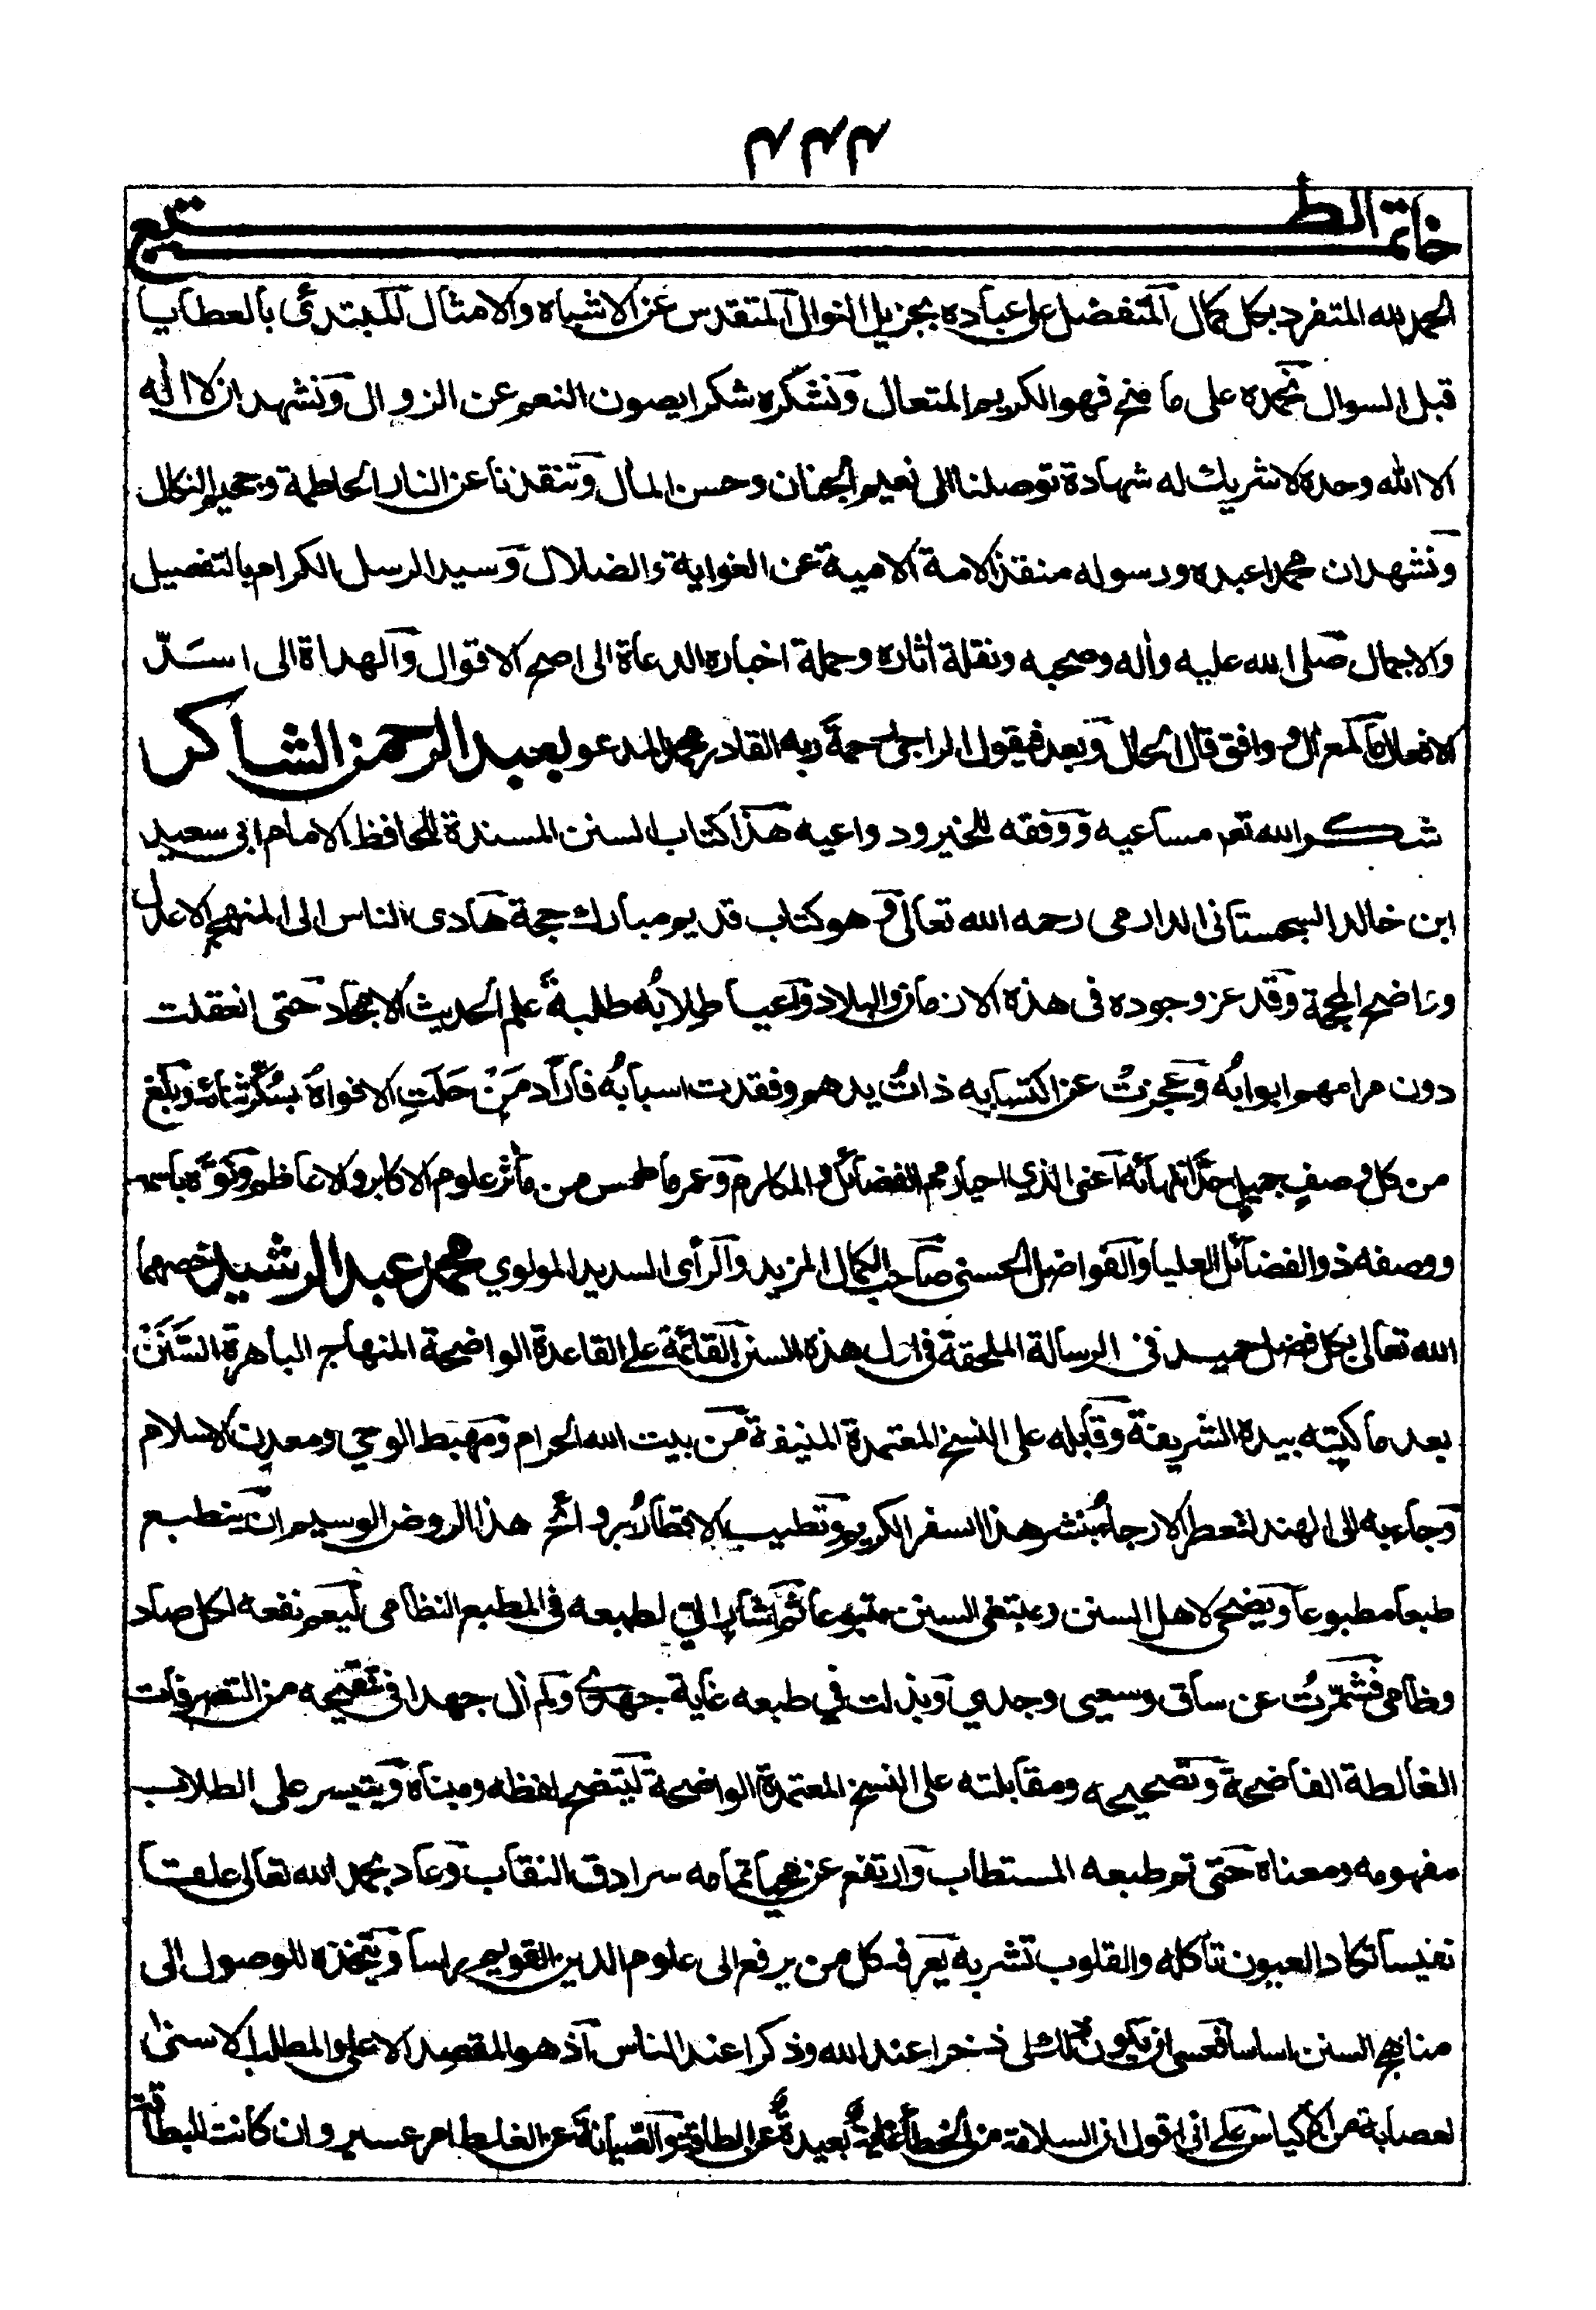 خاتمة الطبع
الحمد لله المتفرد بكل كمال المتفضل على عباده بجزيل النوال المتقدس عن الاشباه والامثال المبتدئ بالعطايا
قبل السوال نحمده على ما منح فهو الكريم المتعال ونشكره شكرا يصون النعم عن الزوال ونشهد ان لا اله
الا الله وحده لا شريك له شهادة توصلنا الى نعيم الجنان وحسن المآل وتنقذنا عن النار الحاطمة وجحيم النكال
ونشهد ان محمدا عبده ورسوله منقذ الامة الامية عن الغواية والضلال وسيد الرسل الكرام بالتفصيل
والاجمال صلى الله عليه وأله وصحبه ونقلة أثاره وحملة اخباره الدعاة الى اصح الاقوال والهداة الى اسدّ
الافعال ما وافق قال الحال وبعد فيقول الراجي رحمة ربه القادر محمد المدعو بعبد الرحمن الشاكر
شكر الله تعم مساعيه ووفقه للخير ودواعيه هذا كتاب السنن المسندة للحافظ الامام ابى سعيد
ابن خالد السجستانى الدارمى رحمه الله تعالى وهو كتاب قديم مبارك حجة هادى الناس الى المنهج الاعدل
وراضح المحجة وقد عز وجوده فى هذه الازمان والبلاد واعيا طلابُه طلبةَ علم الحديث الامجاد حتى انعقلت
دون مرامهم ابوابُه وعجزتْ عن اكتسابه ذاتُ يدهم وفقدت اسبابُه فاراد مَنْ حَلَتِ الافواهُ بسُكّر ثنائه وبلغ
من كل وصفٍ جميلٍ حدَّ انتهائه اعنى الذي احيا رمم الفضائل والمكارم وعمر ما طمس من مأثر علوم الاكابر والاعاظم ونوّه باسمه
ووصفه ذو الفضائل العليا والفواضل الحسنى صاحب الكمال المزيد والرأى السديد المولوي محمد عبد الرشيد خصهما
الله تعالى بكل فضل حميد فى الرسالة الملحقة فى اول هذه السنن القائمة على القاعدة الواضحة المنهاج الباهرة السَّنَن
بعد ما كتبته بيده الشريفة وقابله على النسخ المعتمدة المنيفة من بيت الله الحرام ومهبط الوحي ومعدن الاسلام
وجاء به الى الهند لتعطر الارجاءُ بنشر هذا السفر الكريم وتطيب الاقطارُ بروائح هذا الروض الوسيم ان ينطبع
طبعا مطبوعا ويضحى لاهل السنن ومبتغى السنن متبوعا ثم اشار الي لطبعه فى المطبع النظامى ليعم نفعه لكل صاد
وظامى فشمّرتُ عن ساقى وسعيى وجدي وبذلت في طبعه غاية جهدى ولم أل جهدا فى تنقيحه من التصرفات
الغالطة الفاضحة وتصحيحه ومقابلته على النسخ المعتمدة الواضحة ليتضح لفظه ومبناه ويتيسر على الطلاب
مفهومه ومعناه حتى تم طبعه المستطاب وارتفع عن محيا تمامه سرادق النقاب وعاد بحمد الله تعالى علقتا
نفيسا تكاد العيون تأكله والقلوب تشربه يعرفه كل من يرفع الى علوم الدين القويم راسا ويتخذه للوصول الى
مناهج السنن اساسا فعسى ان يكون ذلك لى ذخرا عند الله وذكرا عند الناس اذ هو المقصد الاعلى والمطلب الاسنى
لعصابة من الاكياس على انى اقول ان السلامة من الخطأ غاية بعيدة عن الطاقة والصيانة عن الغلط امر عسير وان كانت للبطاقة